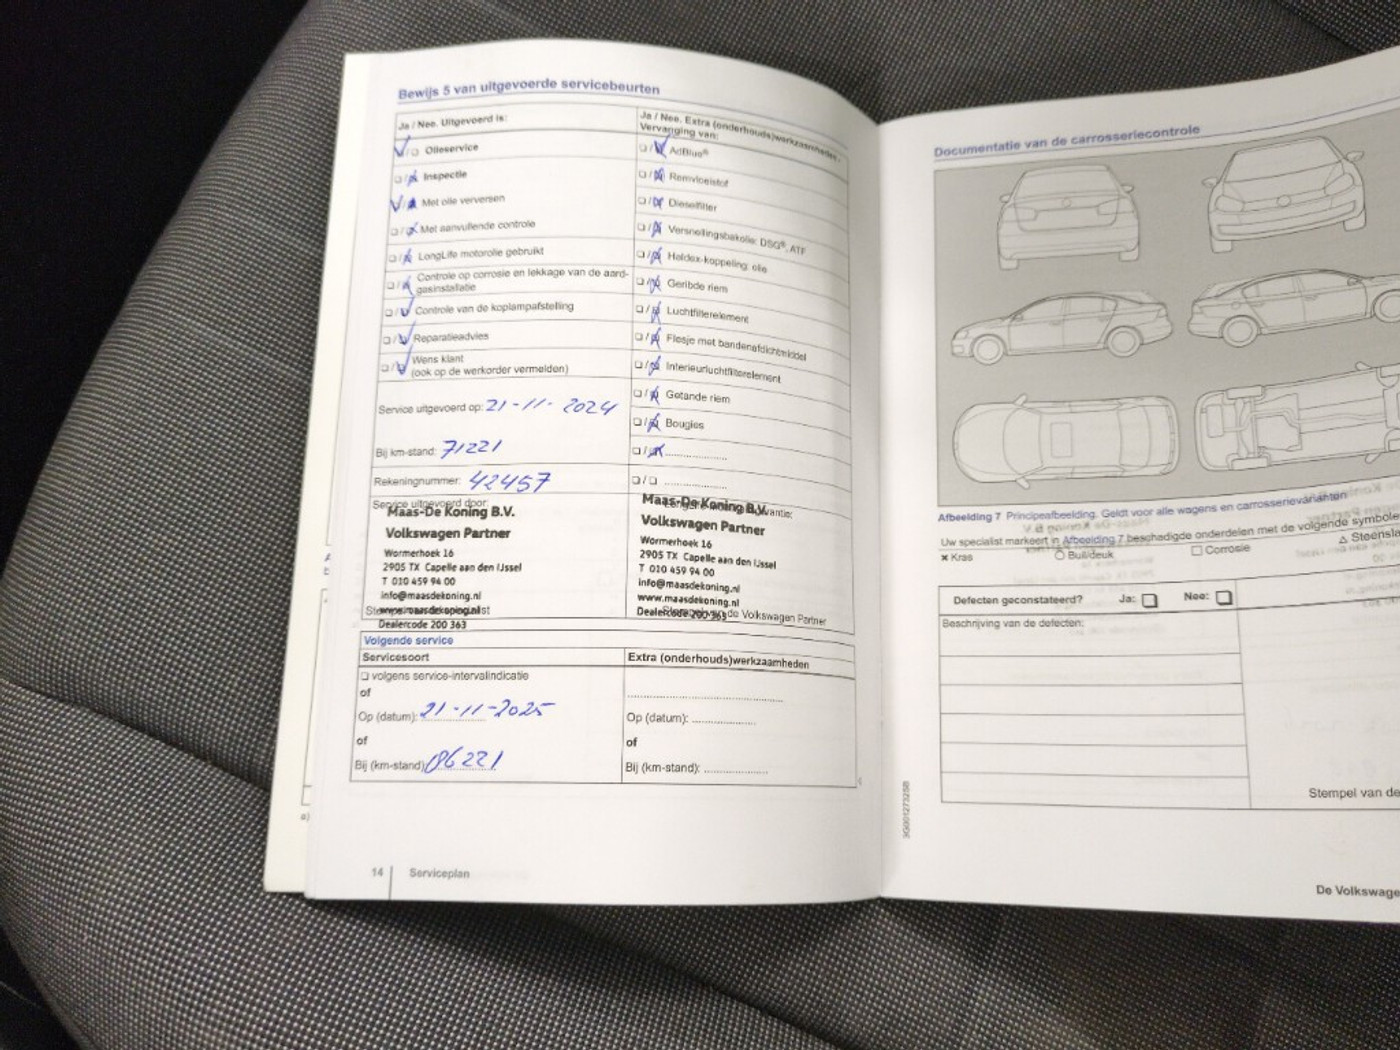 Bewijs 5 van uitgevoerde servicebeurten
Ja / Nee. Uitgevoerd is:
Olieservice
Inspectie
Met olie verversen
Met aanvullende controle
LongLife motorolie gebruikt
Controle op corrosie en lekkage van de aard-
gasinstallatie
Controle van de koplampafstelling
Reparatieadvies
Wens klant
(ook op de werkorder vermelden)
Service uitgevoerd op: 21-11-2024
Bij km-stand: 71221
Rekeningnummer: 42457
Service uitgevoerd door:
Maas-De Koning B.V.
Volkswagen Partner
Wormerhoek 16
2905 TX Capelle aan den IJssel
T 010 459 94 00
info@maasdekoning.nl
www.maasdekoning.nl
Dealercode 200 363
Ja / Nee. Extra (onderhouds)werkzaamheden -
Vervanging van:
AdBlue®
Remvloeistof
Dieselfilter
Versnellingsbakolie: DSG®, ATF
Haldex-koppeling: olie
Geribde riem
Luchtfilterelement
Flesje met bandenafdichtmiddel
Interieurluchtfilterelement
Getande riem
Bougies
Maas-De Koning B.V.
Volkswagen Partner
Wormerhoek 16
2905 TX Capelle aan den IJssel
T 010 459 94 00
info@maasdekoning.nl
www.maasdekoning.nl
Dealercode 200 363
Stempel van de Volkswagen Partner
Volgende service
Servicesoort
volgens service-intervalindicatie
of
Op (datum): 21-11-2025
of
Bij (km-stand): 86221
Extra (onderhouds)werkzaamheden
Op (datum):
of
Bij (km-stand):
14 Serviceplan
Documentatie van de carrosseriecontrole
Afbeelding 7 Principeafbeelding. Geldt voor alle wagens en carrosserievarianten
Uw specialist markeert in Afbeelding 7 beschadigde onderdelen met de volgende symbole
× Kras ○ Buil/deuk □ Corrosie △ Steensla
Defecten geconstateerd? Ja: Nee:
Beschrijving van de defecten:
Stempel van de
3G0012732SB
De Volkswage